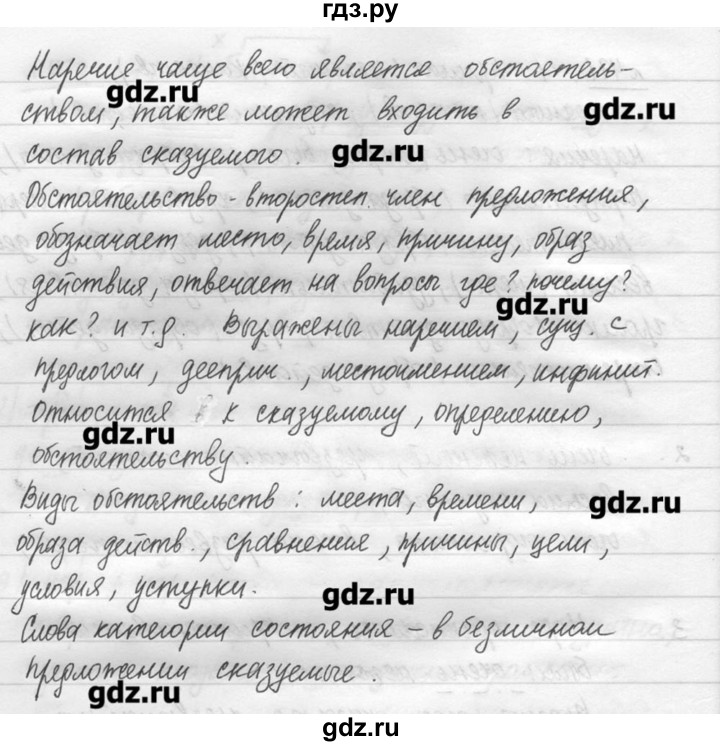 гдз.ру
Наречие чаще всего является обстоятель-
gdz.ru
ством, также может входить в
gdz.ru
состав сказуемого.
gdz.ru
Обстоятельство - второстеп. член предложения,
обозначает место, время, причину, образ
действия, отвечает на вопросы где? почему?
gdz.ru
как? и т.д. Выражены наречием, сущ с
предлогом, дееприч., местоимением, инфинит.
Относится к сказуемому, определению,
gdz.ru
обстоятельству.
Виды обстоятельств: места, времени,
gdz.ru
образа действ., сравнения, причины, цели,
условия, уступки.
gdz.ru
Слова категории состояния - в безличном
предложении сказуемые.
gdz.ru
gdz.ru